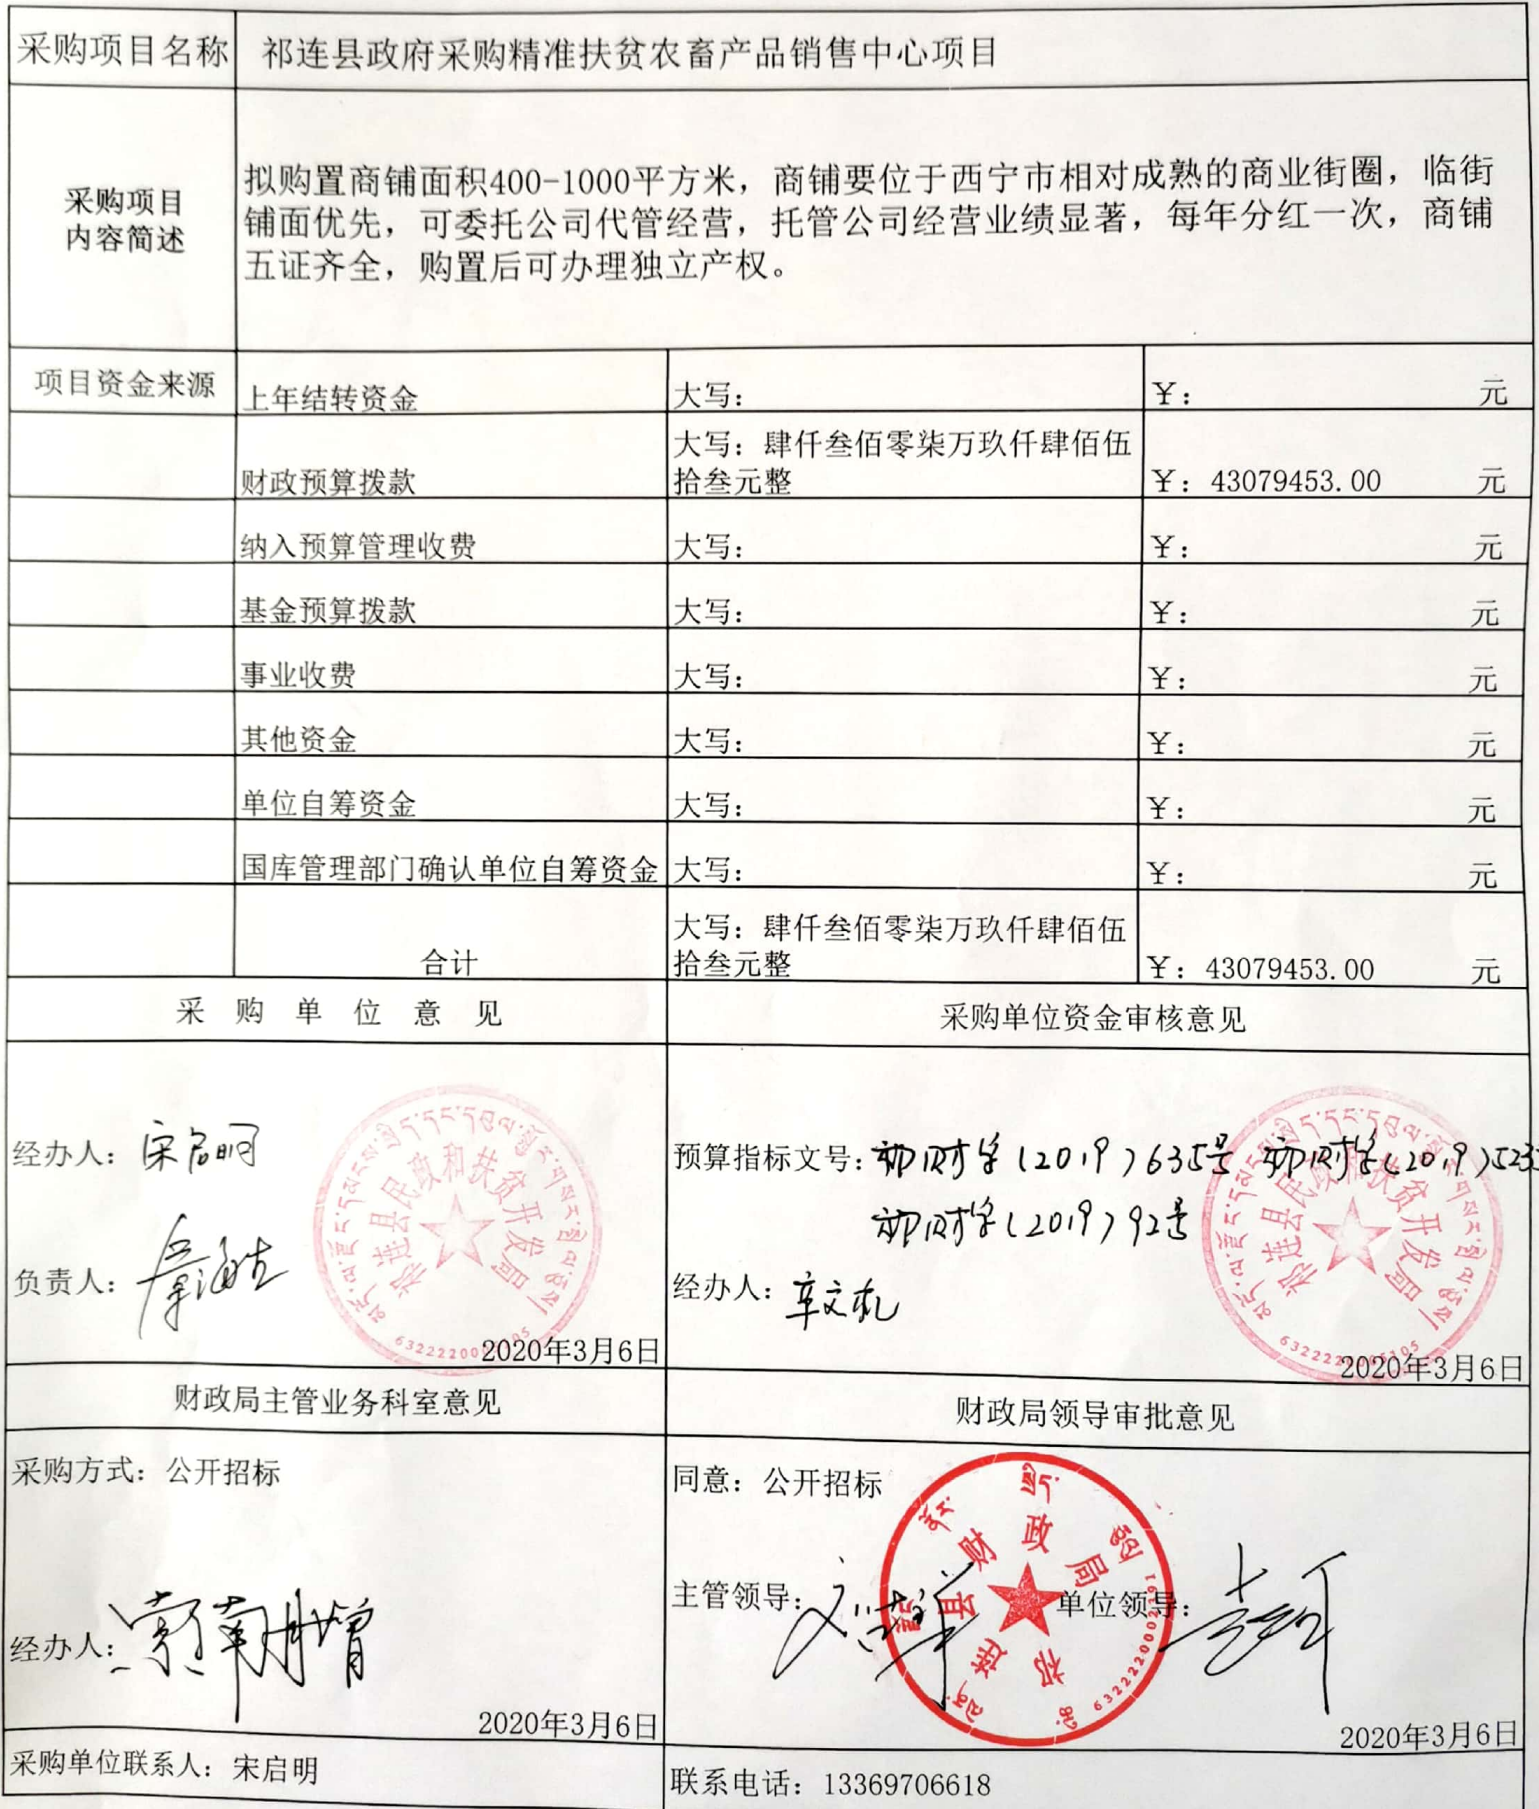 采购项目名称 祁连县政府采购精准扶贫农畜产品销售中心项目
采购项目
内容简述
拟购置商铺面积400-1000平方米，商铺要位于西宁市相对成熟的商业街圈，临街
铺面优先，可委托公司代管经营，托管公司经营业绩显著，每年分红一次，商铺
五证齐全，购置后可办理独立产权。
项目资金来源 上年结转资金 大写： ￥： 元
财政预算拨款 大写：肆仟叁佰零柒万玖仟肆佰伍
拾叁元整 ￥：43079453.00 元
纳入预算管理收费 大写： ￥： 元
基金预算拨款 大写： ￥： 元
事业收费 大写： ￥： 元
其他资金 大写： ￥： 元
单位自筹资金 大写： ￥： 元
国库管理部门确认单位自筹资金 大写： ￥： 元
合计 大写：肆仟叁佰零柒万玖仟肆佰伍
拾叁元整 ￥：43079453.00 元
采购单位意见 采购单位资金审核意见
经办人：宋启明
负责人：
祁连县民政和扶贫开发局
2020年3月6日
预算指标文号：祁财字(2019)635号 祁财字(2019)523
祁财字(2019)92号
经办人：
祁连县民政和扶贫开发局
2020年3月6日
财政局主管业务科室意见 财政局领导审批意见
采购方式：公开招标
经办人：索南丹增
2020年3月6日
同意：公开招标
主管领导： 单位领导：
祁连县财政局
2020年3月6日
采购单位联系人：宋启明 联系电话：13369706618